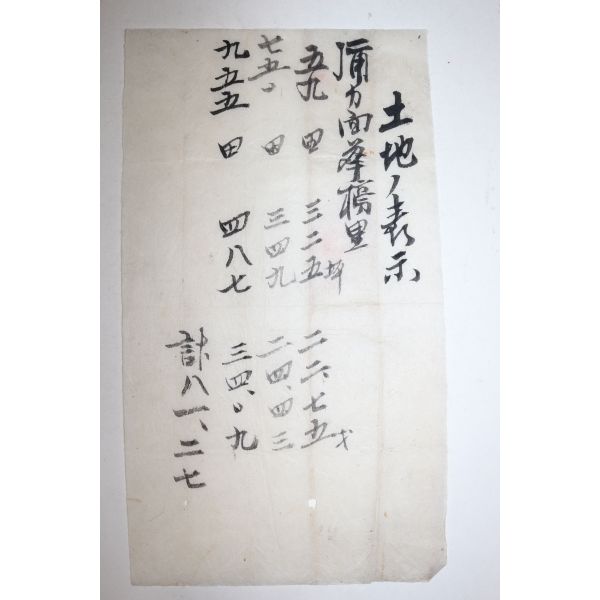 土地ノ表示
面 里
五九 田 三二五坪 二二、七五
七五〇 田 三四九 二四、四三
九五五 田 四八七 三四、〇九
計八一、二七